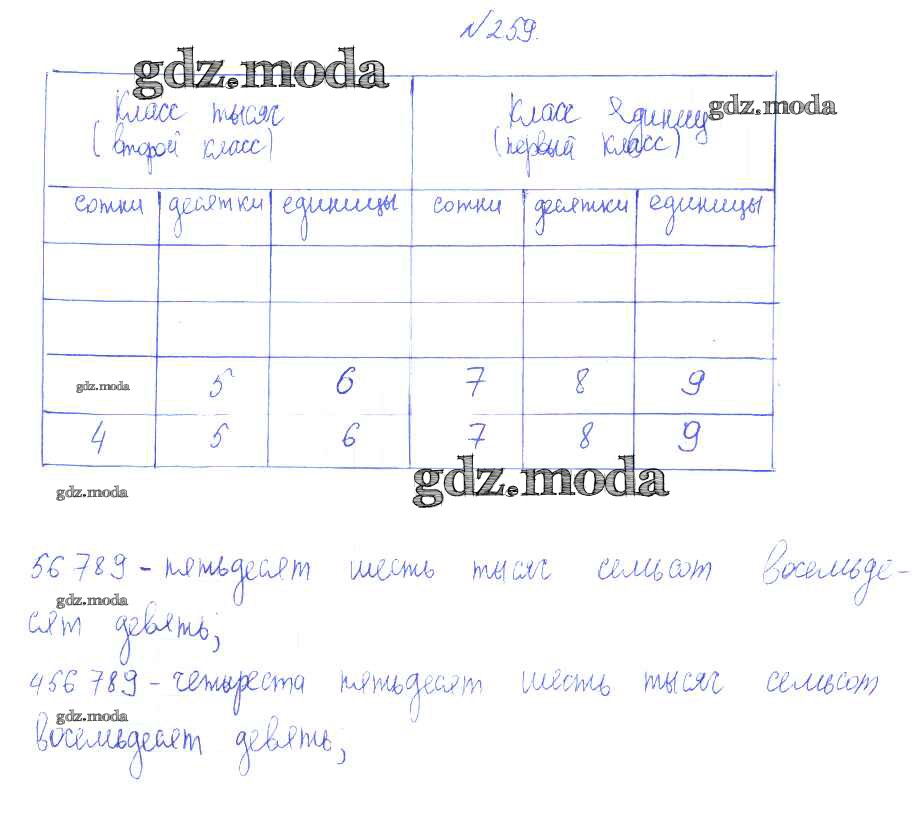 №259.
gdz.moda
Класс тысяч Класс Единиц gdz.moda
(второй класс) (первый класс)
сотни десятки единицы сотни десятки единицы
gdz.moda 5 6 7 8 9
4 5 6 7 8 9
gdz.moda
gdz.moda
56 789 - пятьдесят шесть тысяч семьсот восемьде-
gdz.moda
сят девять;
456 789 - четыреста пятьдесят шесть тысяч семьсот
gdz.moda
восемьдесят девять;